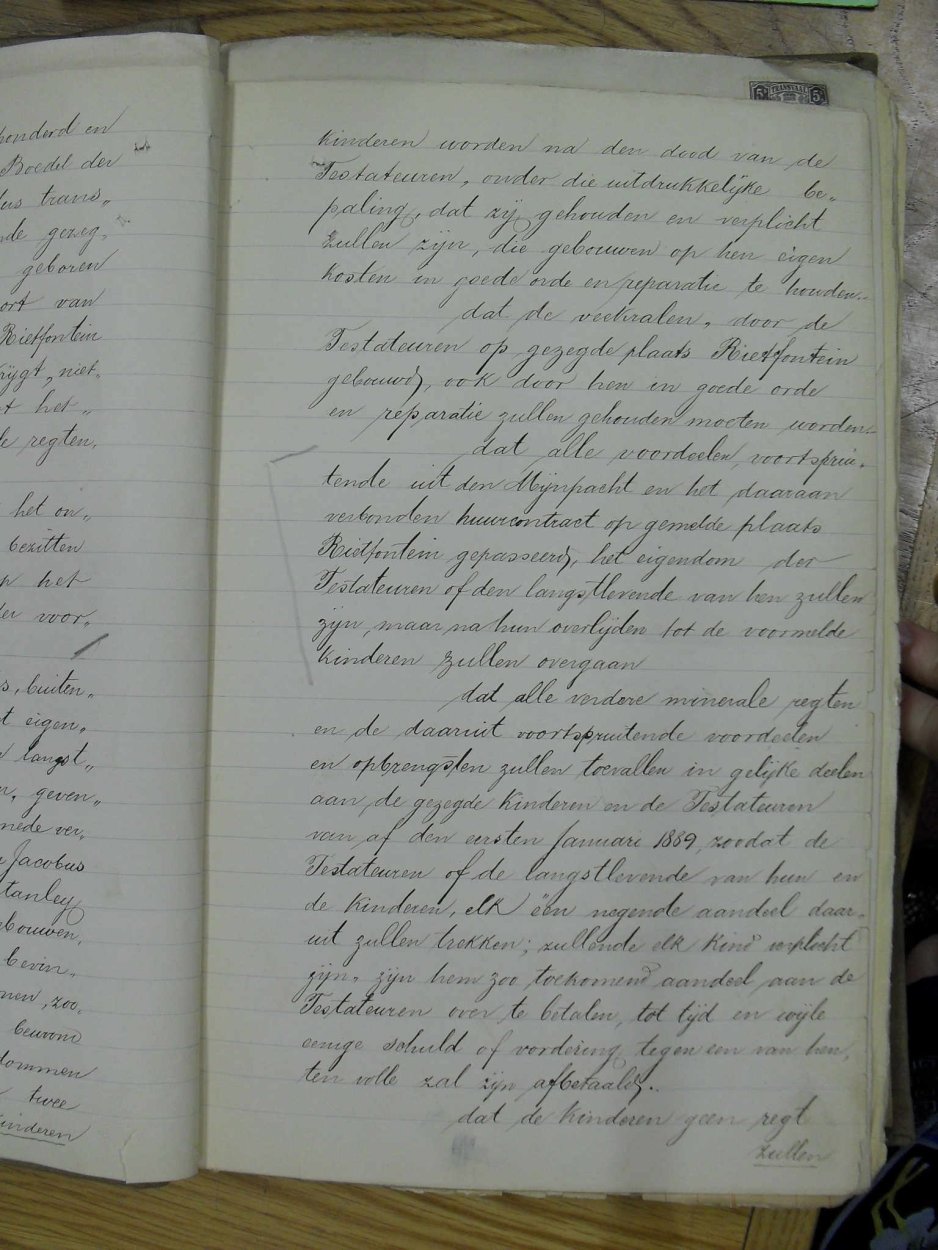 honderd en
Boedel der
us trans„
de gezeg„
geboren
ort van
Rietfontein
rijgt, niet„
t het„
le regten,
het on„
bezitten
op het
der voor„
s, buiten„
t eigen„
langst„
n, geven„
mede ver„
Jacobus
tanley
ebouwen,
bevin„
men, zoo„
bewoond
dommen
twee
inderen
TRANSVAAL
5/ 5/
kinderen worden na den dood van de
Testateuren, onder die uitdrukkelijke be„
paling, dat zij gehouden en verplicht
zullen zijn, die gebouwen op hen eigen
kosten in goede orde en reparatie te houden.
dat de veekralen, door de
Testateuren op gezegde plaats Rietfontein
gebouwd, ook door hen in goede orde
en reparatie zullen gehouden moeten worden.
dat alle voordeelen, voortsprui„
tende uit den Mijnpacht en het daaraan
verbonden huurcontract op gemelde plaats
Rietfontein gepasseerd, het eigendom der
Testateuren of den langstlevende van hen zullen
zijn, maar na hun overlijden tot de voormelde
kinderen zullen overgaan
dat alle verdere minerale regten
en de daaruit voortspruitende voordeelen
en opbrengsten zullen toevallen in gelijke deelen
aan de gezegde Kinderen en de Testateuren
van af den eersten Januari 1889, zoodat de
Testateuren of de langstlevende van hun en
de kinderen, elk één negende aandeel daar„
uit zullen trekken; zullende elk Kind verplicht
zijn, zijn hem zoo toekomend aandeel aan de
Testateuren over te betalen, tot tijd en wijle
eenige schuld of vordering tegen een van hen,
ten volle zal zijn afbetaald.
dat de Kinderen geen regt
zullen